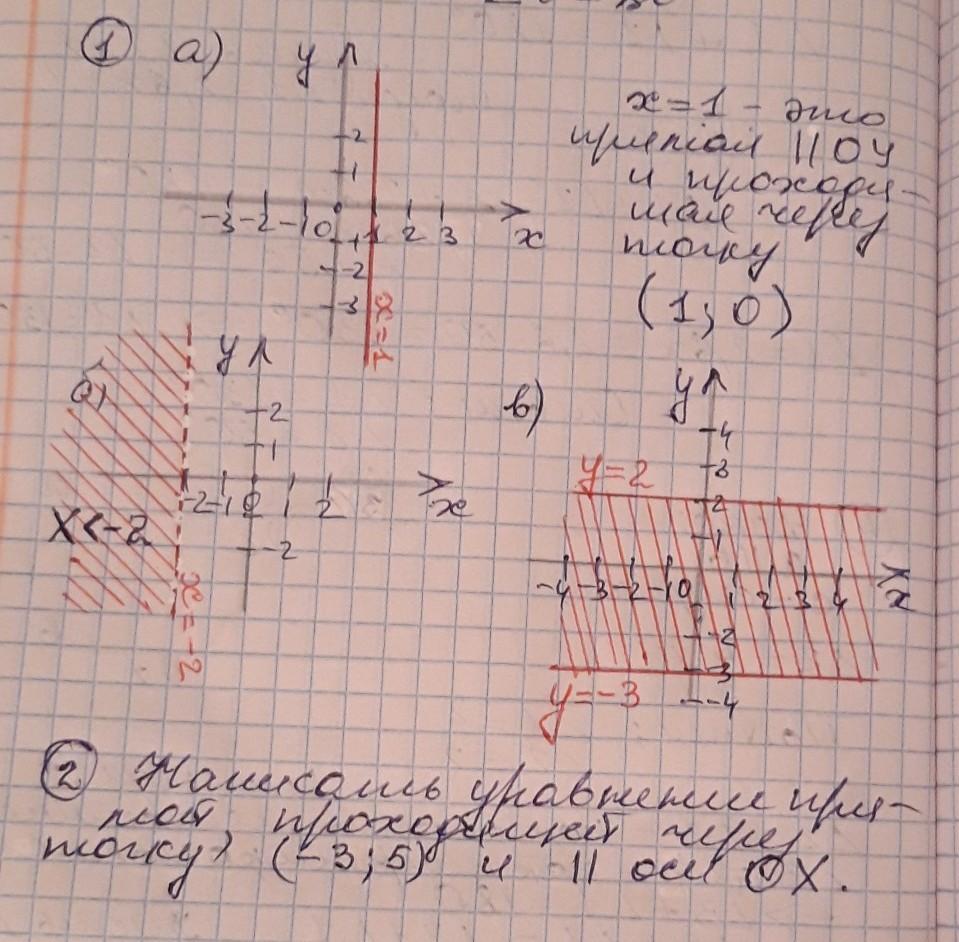 ① а)
y
x = 1 – это
прямая || OY
и проходя-
щая через
точку
(1; 0)
2
1
-3 -2 -1 0 1 2 3 x
-2
-3
x=1
б)
y
2
1
-2 -1 0 1 2 x
-2
X<-2
x=-2
в)
y
4
3
y=2
2
1
-4 -3 -2 -1 0 1 2 3 4 x
-2
-3
y=-3
-4
② Написать уравнении пря-
мой проходящей через
точку (-3; 5) и || оси OX.